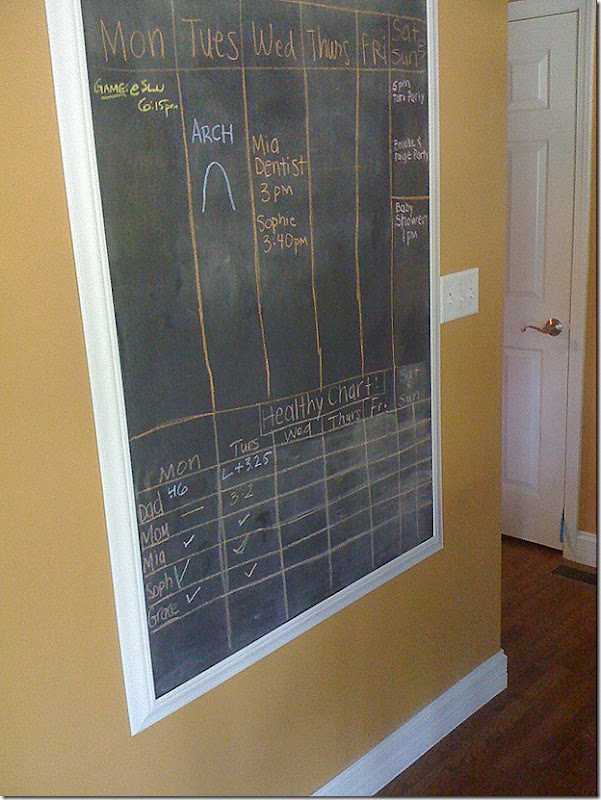 Mon Tues Wed Thurs Fri Sat
Sun
GAME: @ SLU
6:15pm
ARCH
Mia
Dentist
3 pm
Sophie
3:40pm
5pm
Party
& Paige Party
Baby
Shower
1 pm
Healthy Chart:
Mon Tues Wed Thurs Fri. Sat
&
Sun
Dad 46 ✓+3.25
Mom — 3.2
Mia ✓ ✓
Soph ✓ ✓
Grace ✓ ✓